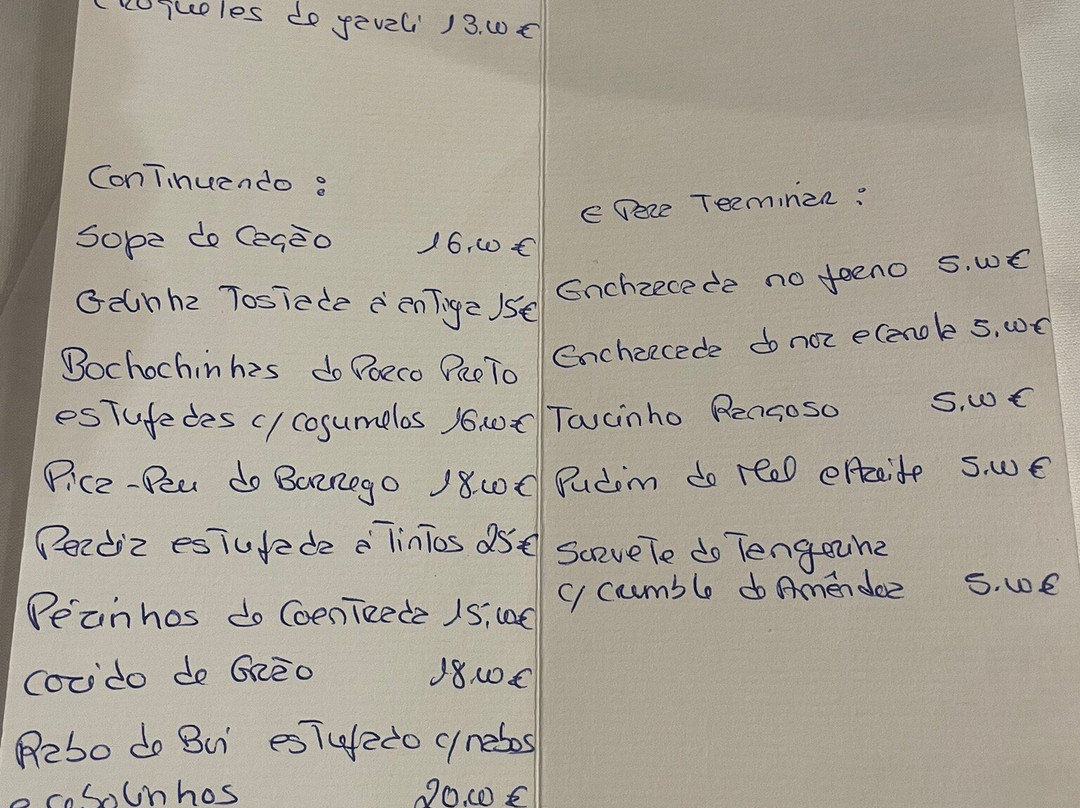 Croquetes de javali 13.00€
Continuando :
Sopa de Cação 16.00€
Galinha Tostada á antiga 15€
Bochochinhas de Porco Preto
estufadas c/ cogumelos 16.00€
Pica-Pau de Borrego 18.00€
Perdiz estufada á Tintos 25€
Pézinhos de Coentrada 15,00€
Cozido de Grão 18.00€
Rabo de Boi estufado c/ nabos
e cebolinhas 20.00€
E Para Terminar :
Encharcada no forno 5.00€
Encharcada de noz e canela 5.00€
Toucinho Rançoso 5.00€
Pudim de Mel e Azeite 5.00€
Sorvete de Tangerina
c/ crumble de Amêndoa 5.00€